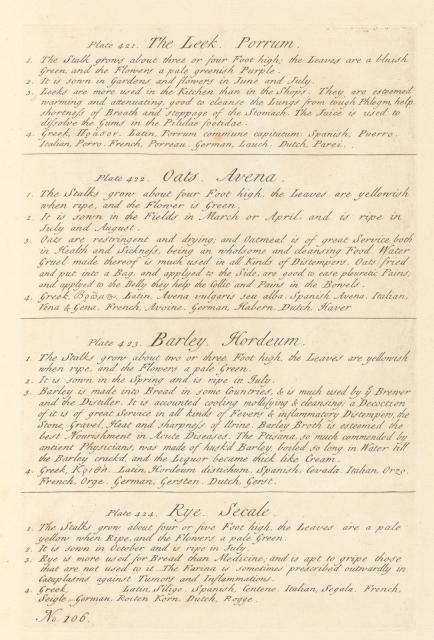 Plate 421. The Leek. Porrum.
1. The Stalk grows about three or four Foot high; the Leaves are a bluish
Green, and the Flowers a pale greenish Purple.
2. It is sown in Gardens and flowers in June and July.
3. Leeks are more used in the Kitchen than in the Shops. They are esteemed
warming and attenuating, good to cleanse the Lungs from tough Phlegm, help
shortness of Breath and stoppage of the Stomach. The Juice is used to
dissolve the Gums in the Pilulæ foetidae.
4. Greek, Latin, Porrum commune capitatum. Spanish, Puerro.
Italian, Porro. French, Porreau. German, Lauch. Dutch, Parei.
Plate 422. Oats. Avena.
1. The Stalks grow about four Foot high, the Leaves are yellowish
when ripe, and the Flower is Green.
2. It is sown in the Fields in March or April, and is ripe in
July and August.
3. Oats are restringent and drying; and Oatmeal is of great Service both
in Health and Sickness, being an wholsome and cleansing Food. Water
Gruel made thereof is much used in all Kinds of Distempers. Oats fried
and put into a Bag, and applyed to the Side, are good to ease pleuretic Pains,
and applyed to the Belly they help the Collic and Pains in the Bowels.
4. Greek, Latin, Avena vulgaris seu alba. Spanish, Avena. Italian,
Vena & Gena. French, Avoine. German, Habern. Dutch, Haver
Plate 423. Barley. Hordeum.
1. The Stalks grow about two or three Foot high, the Leaves are yellowish
when ripe, and the Flowers a pale Green.
2. It is sown in the Spring and is ripe in July.
3. Barley is made into Bread in some Countries, & is much used by ye Brewer
and the Distiller. It is accounted cooling mollifying & cleansing; a Decoction
of it is of great Service in all kinds of Fevers & inflammatory Distempers, the
Stone, Gravel, Heat and sharpness of Urine. Barley Broth is esteemed the
best Nourishment in Acute Diseases. The Ptisana, so much commended by
antient Physicians, was made of husk'd Barley, boiled so long in Water till
the Barley crack'd, and the Liquor became thick like Cream.
4. Greek, Κριθή. Latin, Hordeum distichum. Spanish, Cevada. Italian Orzo.
French, Orge. German, Gersten. Dutch, Gerst.
Plate 424. Rye. Secale.
1. The Stalks grow about four or five Foot high, the Leaves are a pale
yellow when Ripe, and the Flowers a pale Green.
2. It is sown in October and is ripe in July.
3. Rye is more used for Bread than Medicine; and is apt to gripe those
that are not used to it. The Farina is sometimes prescribed outwardly in
Cataplasms against Tumors and Inflammations.
4. Greek, Latin, Siligo. Spanish, Centeno. Italian, Segala. French,
Seigle. German, Rocten Korn. Dutch, Rogge.
No. 106.